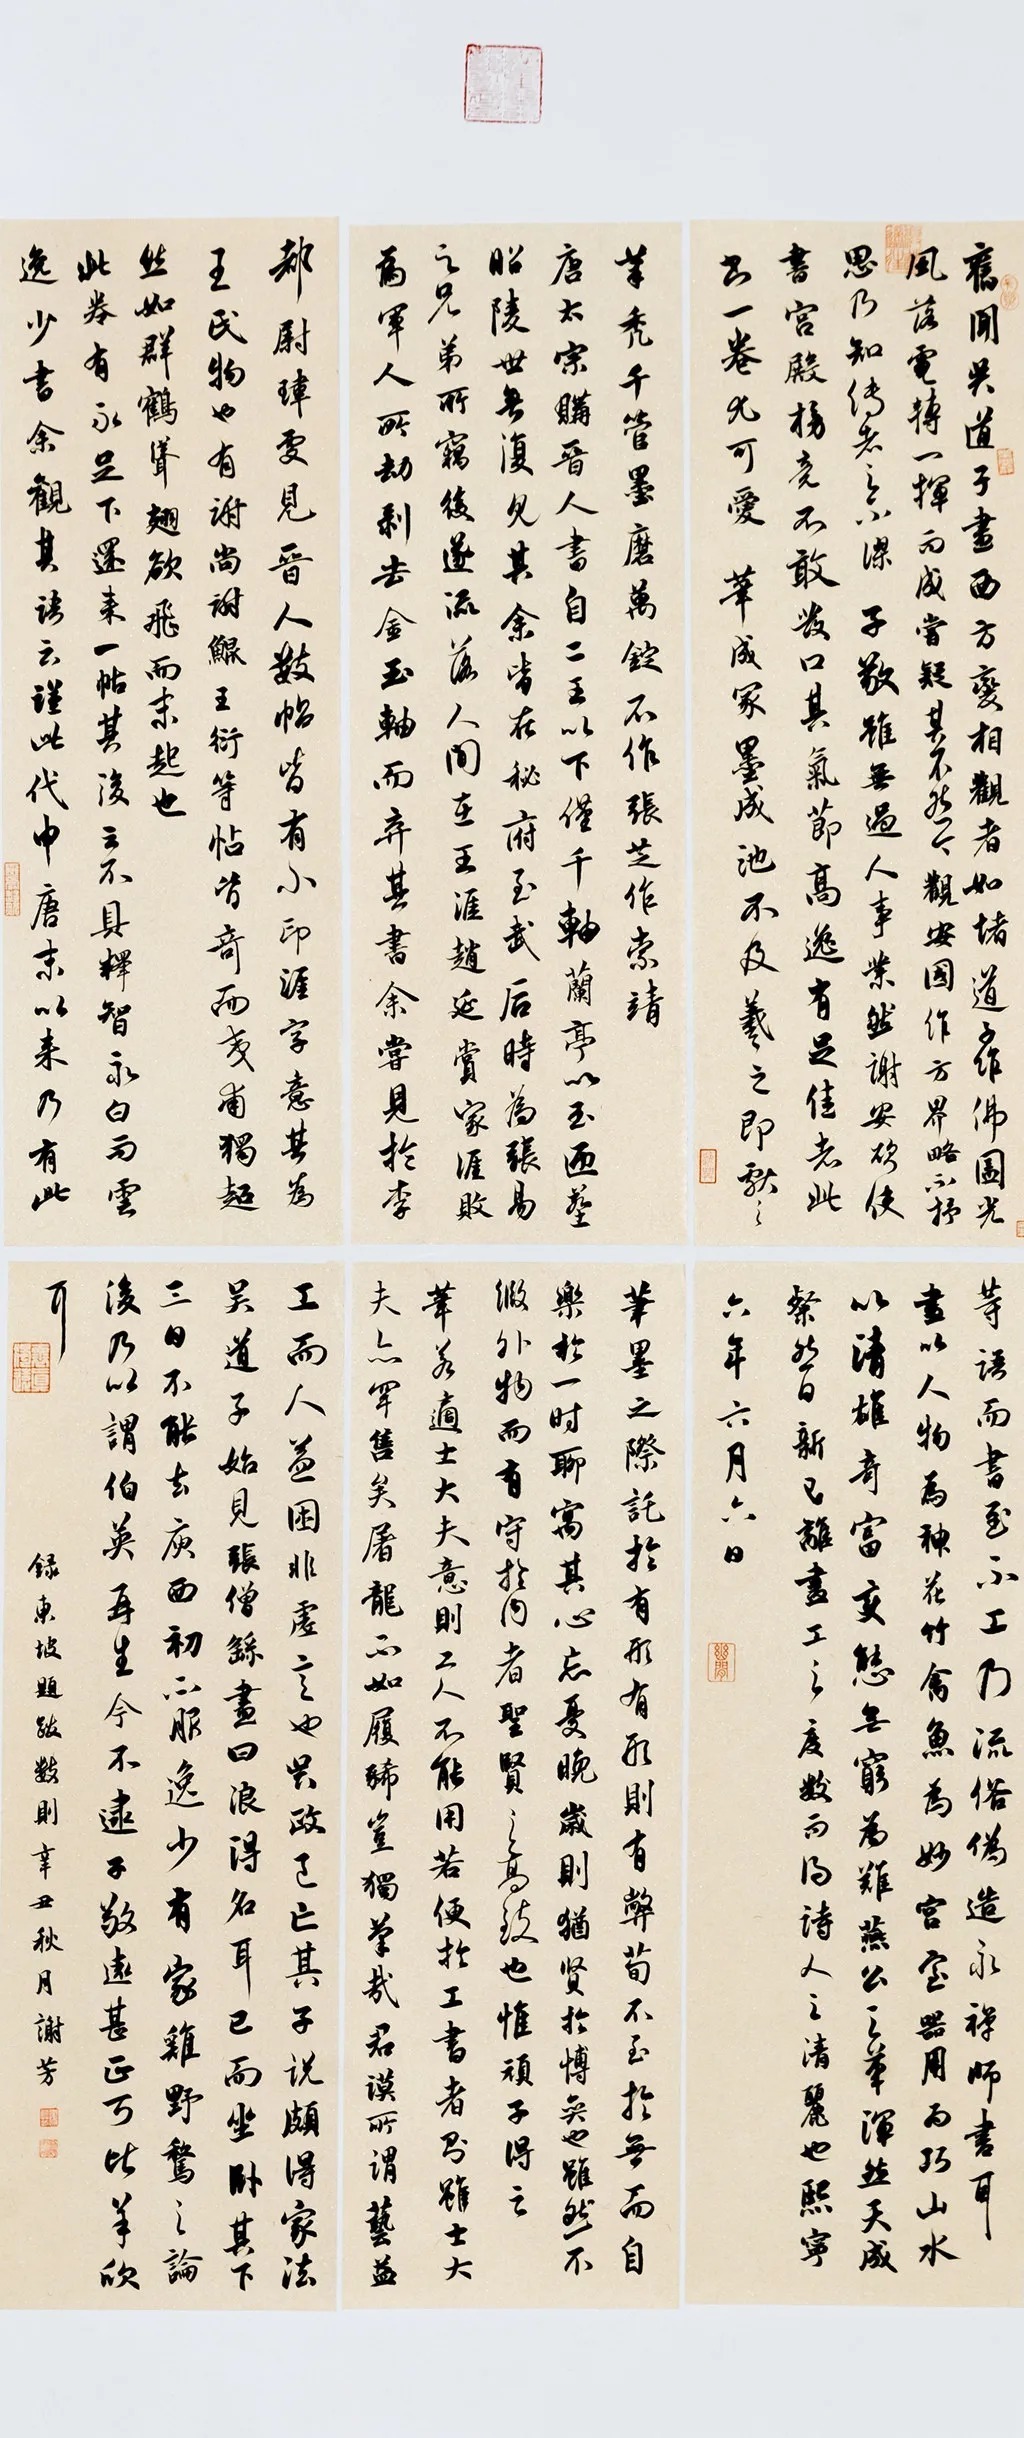 舊聞吳道子畫西方變相觀者如堵道子作佛圓光
風落電轉一揮而成嘗疑其不然今觀安國作方界略不抒
思乃知傳者之不謬 子敬雖無過人事業然謝安欲使
書宮殿榜竟不敢發口其氣節高逸有足佳者此
書一卷尤可愛 筆成冢墨成池不及羲之即獻之
筆禿千管墨磨萬錠不作張芝作索靖
唐太宗購晉人書自二王以下僅千軸蘭亭以玉匣葬
昭陵世無復見其余皆在秘府至武后時為張易
之兄弟所竊後遂流落人間在王涯趙延賞家涯敗
為軍人所劫剥去金玉軸而弃其書余嘗見於李
都尉瑋處見晉人數帖皆有小印涯字意其為
王氏物也有謝尚謝鯤王衍等帖皆奇而夷甫獨超
然如群鶴聳翅欲飛而未起也
此卷有永足下還来一帖其後云不具釋智永白而雲
逸少書余觀其語云謹此代申唐末以来乃有此
等語而書至不工乃流俗偽造永禪師書耳
畫以人物為神花竹禽魚為妙宮室器用為巧山水
以清雄奇富变態無窮為難燕公之筆渾然天成
粲然日新已離畫工之度數而得詩人之清麗也熙寧
六年六月六日
筆墨之際託於有形有形則有弊苟不至於無而自
樂於一时聊寓其心忘憂晚歲則猶贤於博奕也雖然不
假外物而有守於内者聖賢之高致也惟顏子得之
筆若適士大夫意則工人不能用若便於工書者則雖士大
夫亦罕售矣屠龍不如履豨豈獨筆哉君謨所謂藝益
工而人益困非虚言也吳政已亡其子说頗得家法
吴道子始見張僧繇畫曰浪得名耳已而坐卧其下
三日不能去庾西初不服逸少有家雞野鶩之論
後乃以謂伯英再生今不逮子敬遠甚正可比羊欣
耳
録東坡題跋數則辛丑秋月謝芳